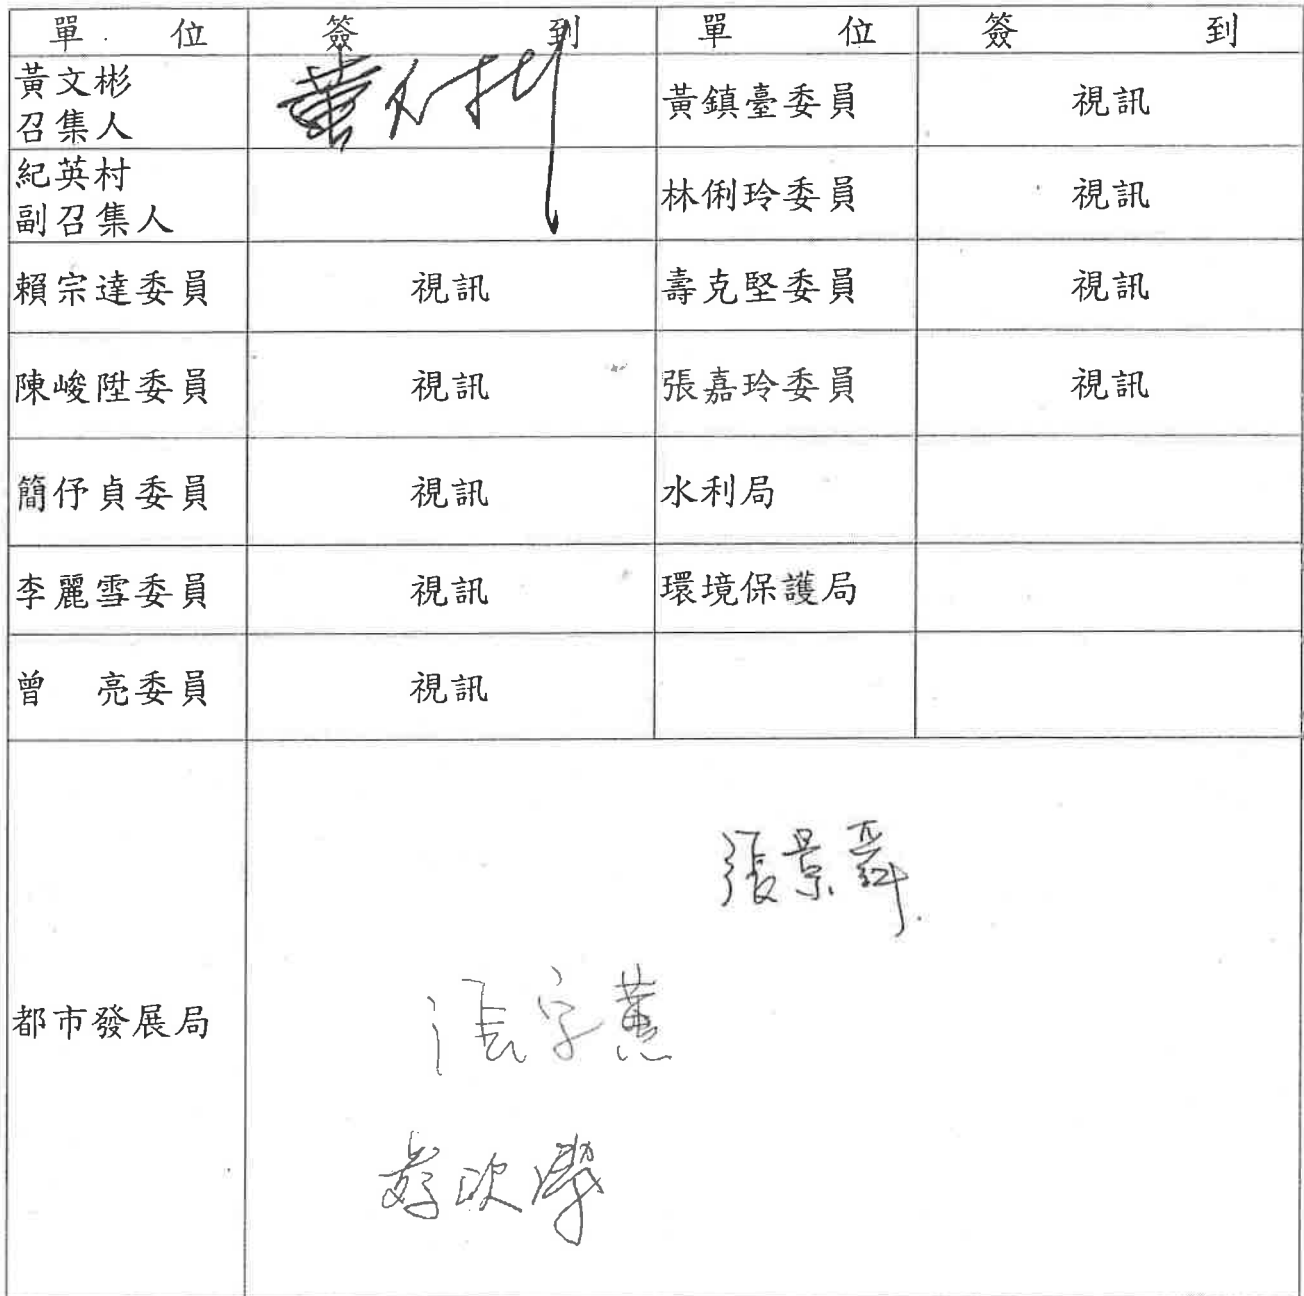 單 位 簽 到 單 位 簽 到
黃文彬
召集人
黃文彬
黃鎮臺委員 視訊
紀英村
副召集人
林俐玲委員 視訊
賴宗達委員 視訊 壽克堅委員 視訊
陳峻陞委員 視訊 張嘉玲委員 視訊
簡伃貞委員 視訊 水利局
李麗雪委員 視訊 環境保護局
曾 亮委員 視訊
都市發展局
張景
張